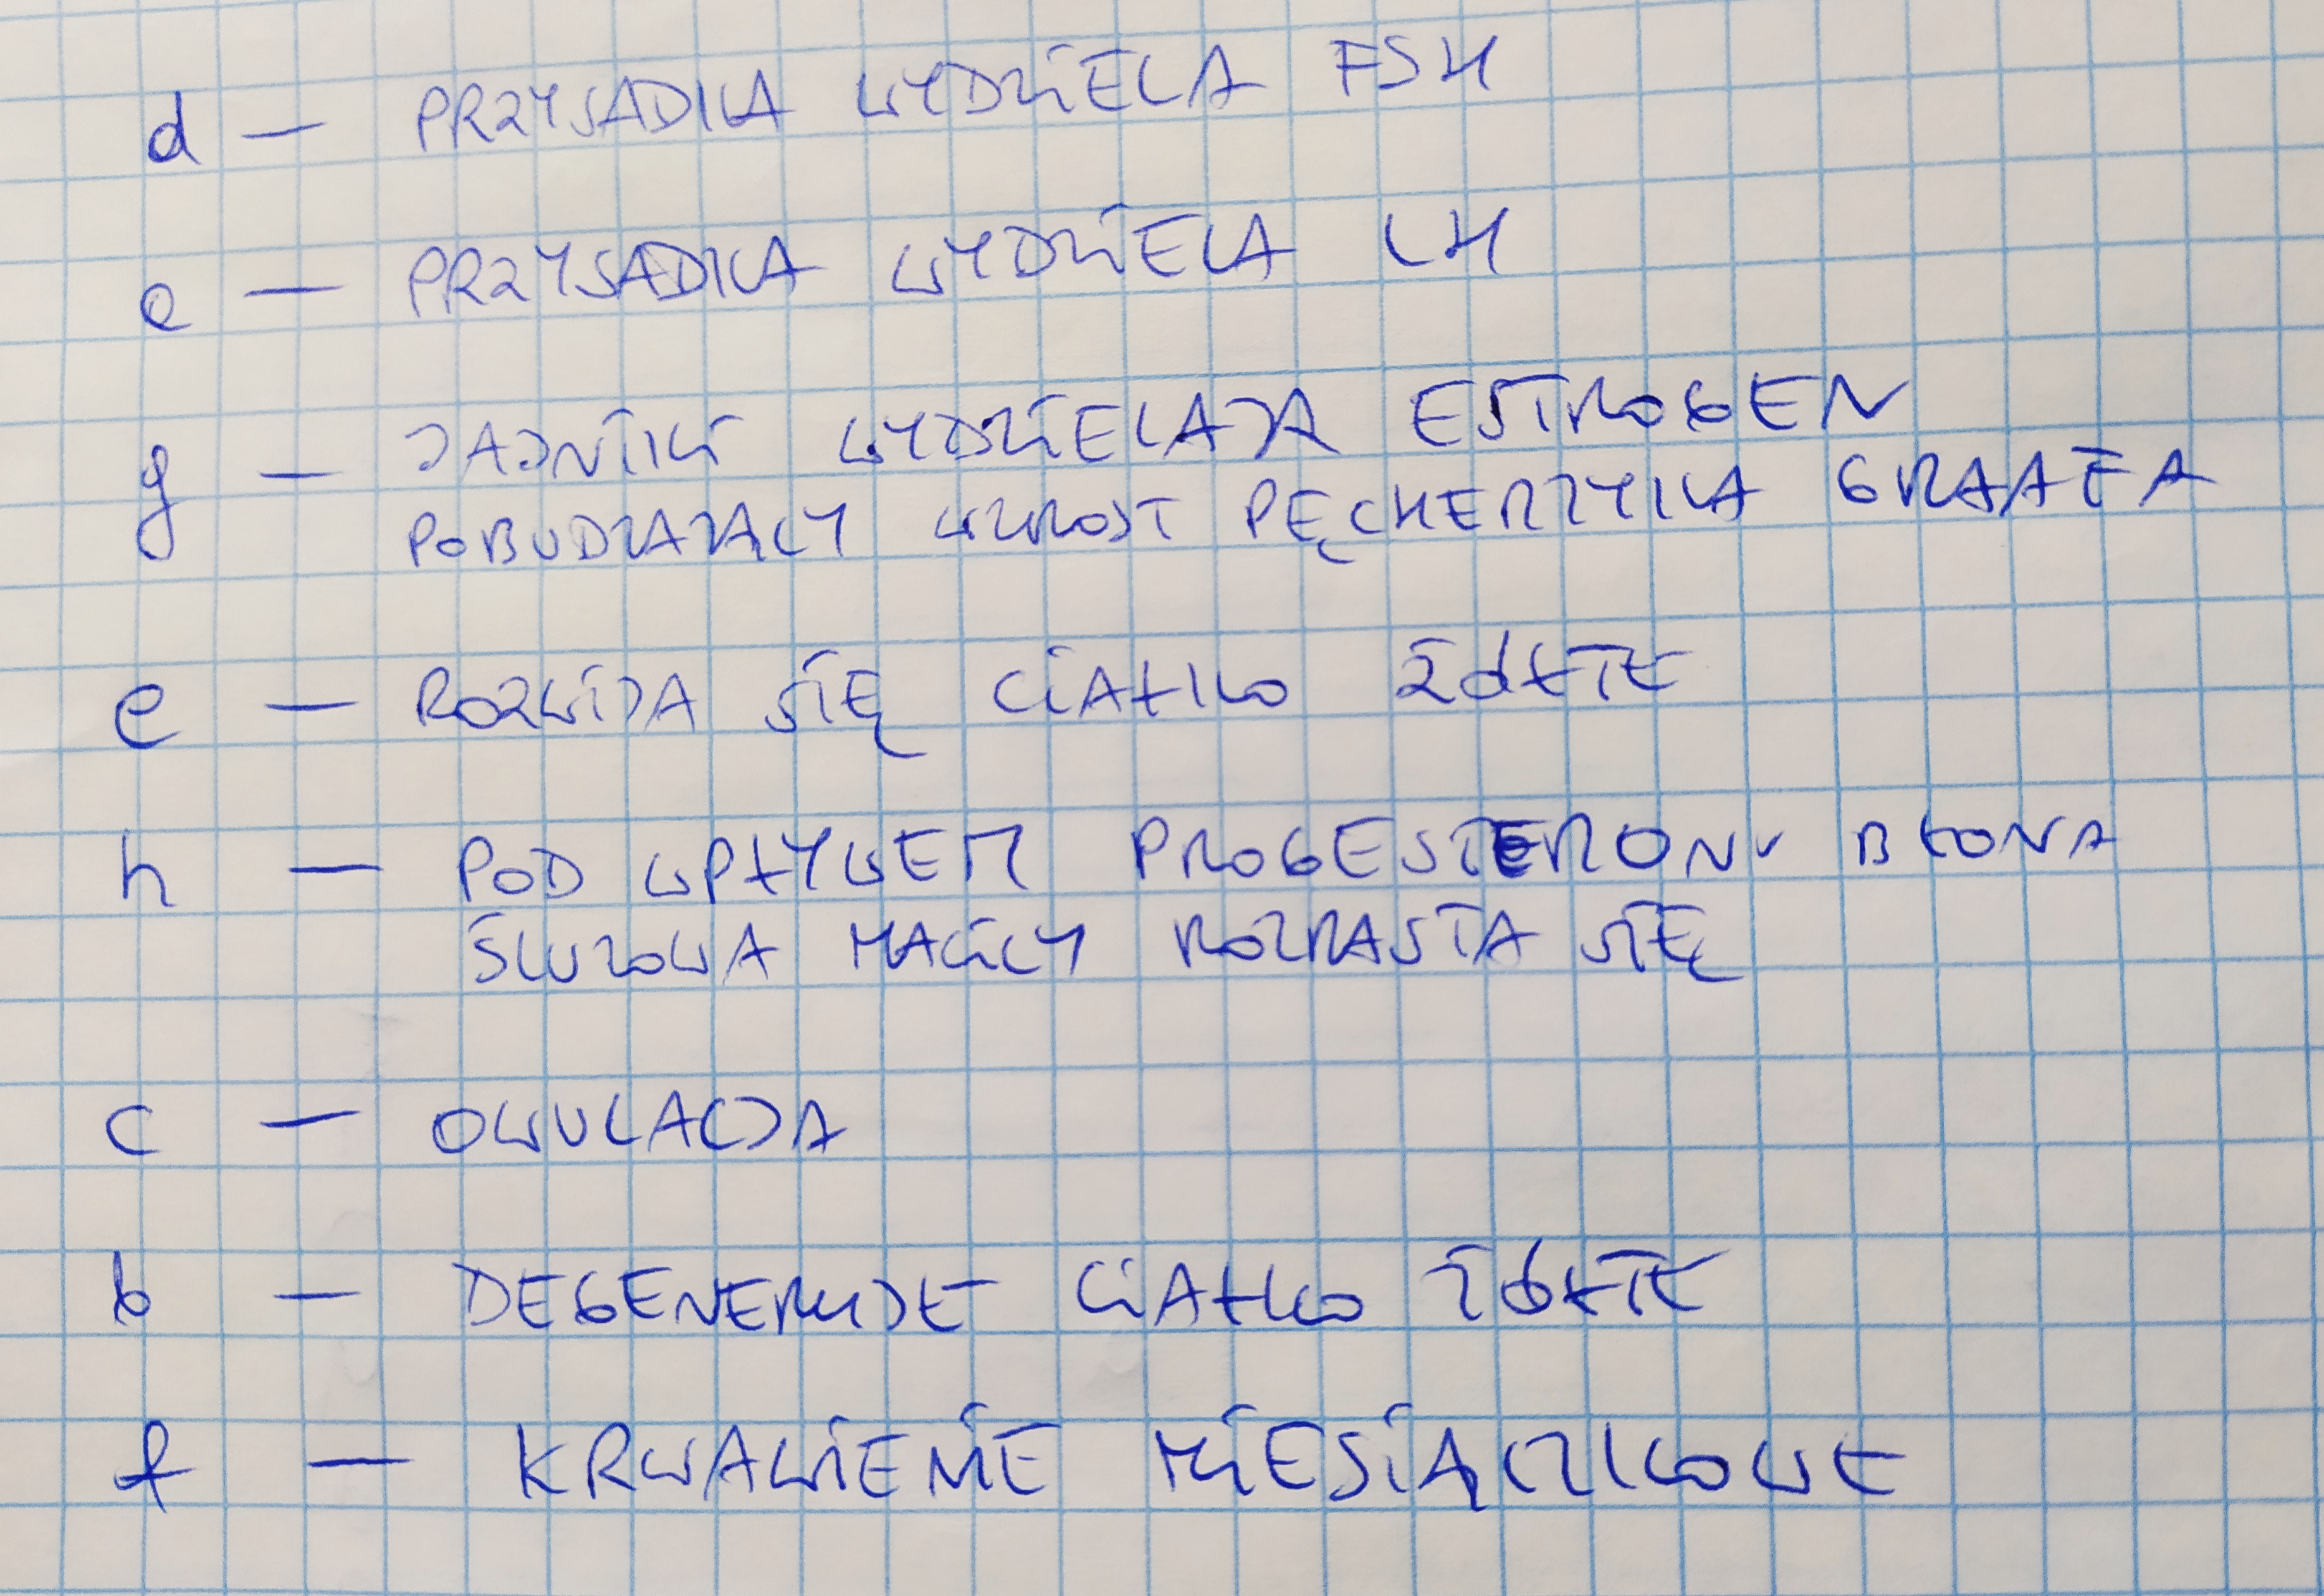 d — PRZYSADKA WYDZIELA FSH
e — PRZYSADKA WYDZIELA LH
g — JAJNIKI WYDZIELAJA ESTROGEN
POBUDZAJĄCY WZROST PĘCHERZYKA GRAAFA
e — ROZWIJA SIĘ CIAŁKO ŻÓŁTE
h — POD WPŁYWEM PROGESTERONU BŁONA
ŚLUZOWA MACICY ROZRASTA SIĘ
c — OWULACJA
b — DEGENERUJE CIAŁKO ŻÓŁTE
f — KRWAWIENIE MIESIĄCZKOWE